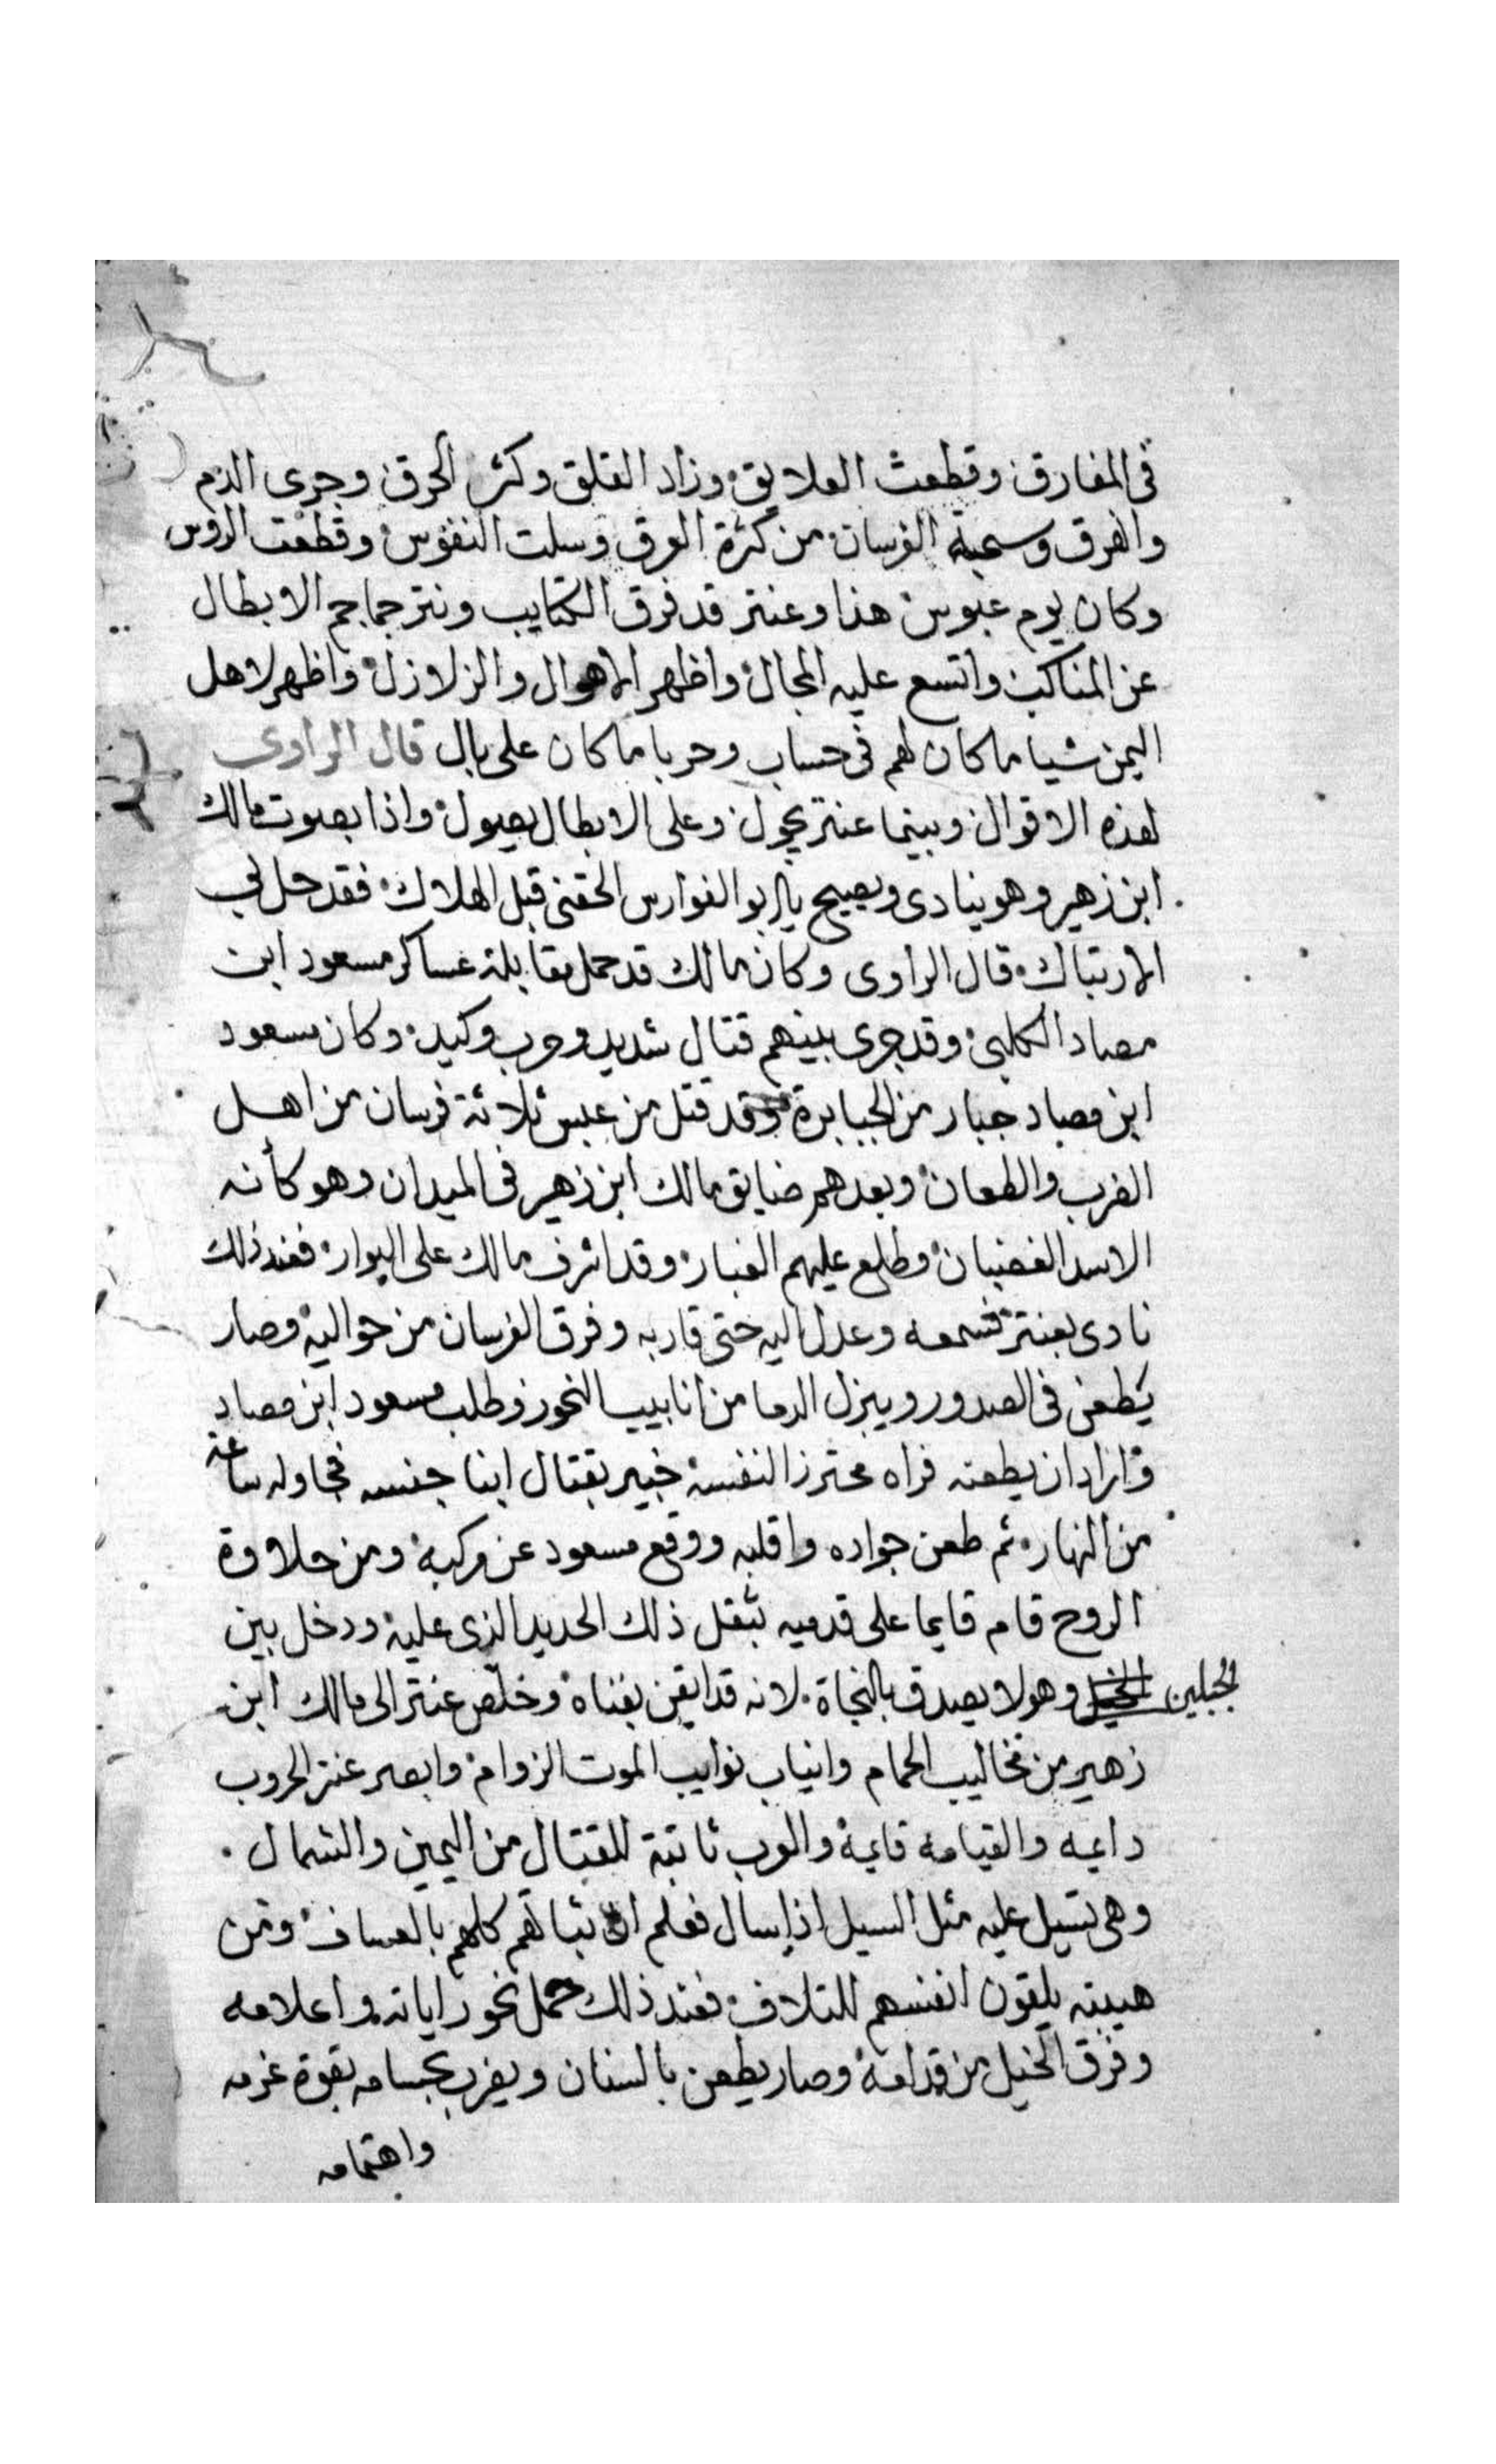 فى المفارق وقطعت العلايق وزاد القلق وكثر الحرق وجرى الدم
والفرق الفرسان من كثرة العرق وسلت النفوس وقطعت الروس
وكان يوم عبوس هذا وعنتر قد فرق الكتايب ونتر جماجم الابطال
عن المناكب واتسع عليه المجال واظهر الاهوال والزلازل واظهر لاهل
اليمن شيا ما كان لهم فى حساب وحربا ما كان على بال قال الراوى
لهذه الاقوال وبينما عنتر يجول وعلى الابطال يصول واذا بصوت مالك
ابن زهير وهو ينادى ويصيح يا ابو الفوارس الحقنى قبل الهلاك فقد حل بى
الارتباك قال الراوى وكان مالك قد حمل مقابلة عساكر مسعود ابن
مصاد الكلبى وقد جرى بينهم قتال شديد وحرب وكيد وكان مسعود
ابن مصاد جبار من الجبابرة وقد قتل من عبس ثلاثة فرسان من اهل
الضرب والطعان وبعدهم ضايق مالك ابن زهير فى الميدان وهو كأنه
الاسد الغضبان وطلع عليهم الغبار وقد اشرف مالك على البوار فعند ذلك
نادى بعنتر فسمعه وعدل اليه حتى قاربه وفرق الفرسان من حواليه وصار
يطعن فى الصدور ويبزل الدما من انابيب النحور وطلب مسعود ابن مصاد
واراد ان يطعنه فراه محترز النفسه خبير بقتال ابنا جنسه فجاوله ساعة
من النهار ثم طعن جواده واقلبه ووقع مسعود عن مركبه ومن حلاوة
الروح قام قايما على قدميه بثقل ذلك الحديد الذى عليه ودخل بين
الجبلين وهو لا يصدق بالنجاة لانه قد ايقن بفناه وخلص عنتر الى مالك ابن
زهير من مخاليب الحمام وانياب نوايب الموت الزوام وابصر عنتر الحروب
دايمه والقيامه قايمة والعرب ثابتة للقتال من اليمين والشمال
وهى تسيل عليه مثل السيل اذا سال فعلم ان ثباتهم كلهم بالعساف ومن
هيبته يلقون انفسهم للتلاف فعند ذلك حمل نحو راياته واعلامه
وفرق الخيل من قدامه وصار يطعن بالسنان ويضرب بحسامه بقوة عزمه
واهتمامه